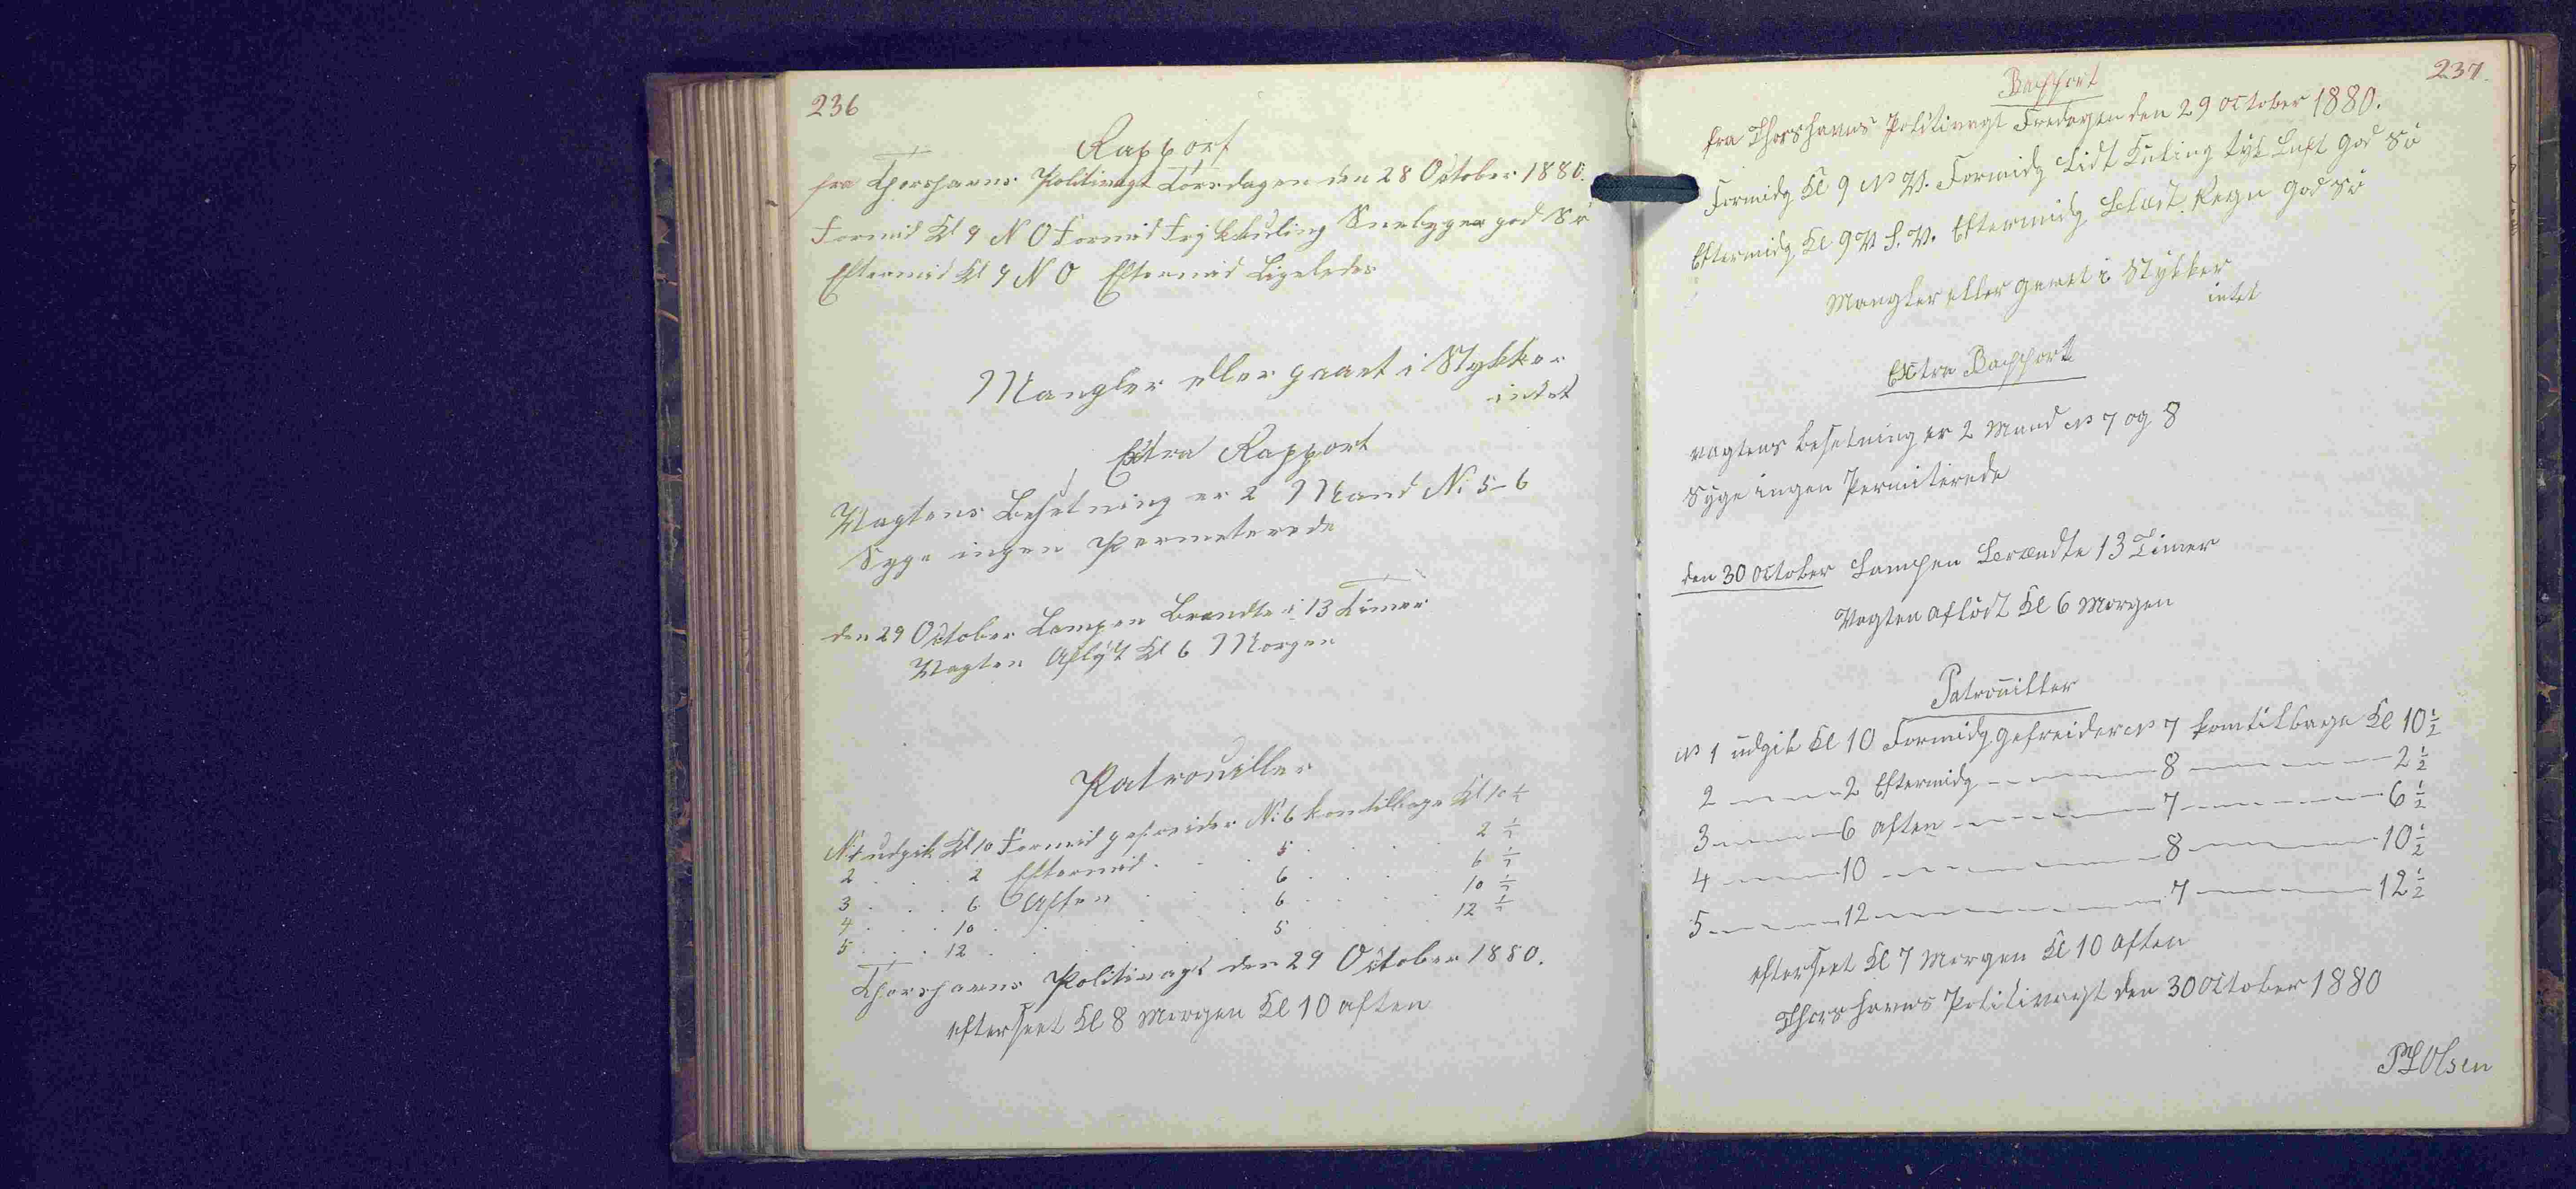 236
Rapport
fra Thorshavns Politivagt Torsdagen den 28 October 1880.
Formid Kl 9 N O Formid Frj kkuling Sneebyger god Sø
Eftermid Kl 9 N O Eftermid Ligeledes
Mangler eller gaaet i Stykker
intet
Extra Rapport
Vagtens Besetning er 2 Mand No 5-6
Syge ingen Permeterede
den 29 October Lampen Brændte i 13 Timer
Vagten Afløst Kl 6 Morgen
Patrouiller
No 1 udgik Kl 10 Formid gefreider No 6 kom tilbage Kl 10 ½
2 . . . 2 Eftermid . . . 5 . . . 2 ½
3 . . . 6 Aften . . . 6 . . . 6 ½
4 . . . 10 . . . 6 . . . 10 ½
5 . . . 12 . . . 5 . . . 12 ½
Thorshavns Politivagt den 29 October 1880.
efterseet Kl 8 Morgen Kl 10 aften
237.
Rapport
fra Thorshavns Politivagt Fredagen den 29 October 1880.
Formidg Kl 9 N V. Formidg Lidt Kuling tyk Luft god Sø
Eftermidg Kl 9 V S. V. Eftermidg Blæst Regn god Sø
Mangler eller gaaet i Stykker
intet
Extra Rapport
vagtens besetning er 2 Mand No 7 og 8
Syge ingen Permiterede
den 30 October Lampen Brændte 13 Timer
Vagten afløst Kl 6 Morgen
Patrouiller
No 1 udgik Kl 10 Formidg gefreider No 7 kom tilbage Kl 10 ½
2 ---- 2 Eftermidg ---- 8 ---- 2 ½
3 ---- 6 aften ---- 7 ---- 6 ½
4 ---- 10 ---- 8 ---- 10 ½
5 ---- 12 ---- 7 ---- 12 ½
efterseet Kl 7 Morgen Kl 10 aften
Thorshavns Politivagt den 30 October 1880
Olsen